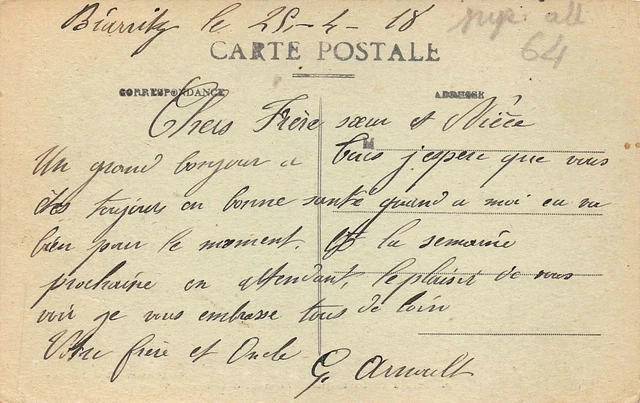 Biarritz le 25-4-18
64
CARTE POSTALE
CORRESPONDANCE
ADRESSE
Chers Frère sœur et Nièce
M
Un grand bonjour a tous j'espere que vous
êtes toujours en bonne santé quand a moi ca va
bien pour le moment. A la semaine
prochaine en attendant, le plaisir de vous
voir je vous embrasse tous de loin
Votre frère et Oncle
G. Arnault